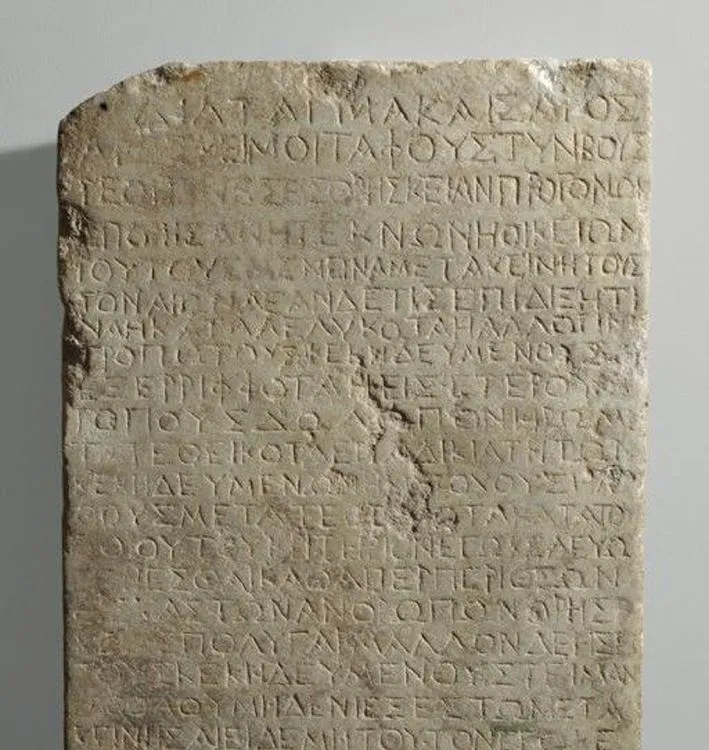 ΔΙΑΤΑΓΜΑ ΚΑΙΣΑΡΟΣ
ΜΟΙ ΤΑΦΟΥΣ ΤΥΝΒΟΥΣ
ΠΡΟΓΟΝΩΝ
ΕΠΟΙΗΣΑΝ Η ΤΕΚΝΩΝ Η ΟΙΚΕΙΩΝ
ΤΟΥΤΟΥΣ ΜΕΝΕΙΝ ΑΜΕΤΑΚΕΙΝΗΤΟΥΣ
ΤΟΝ ΑΙΩΝΑ ΕΑΝ ΔΕ ΤΙΣ ΕΠΙΔΙΞΗ ΤΙ
ΝΑ Η ΚΑΤΑΛΕΛΥΚΟΤΑ Η ΑΛΛΩ ΤΙΝΙ
ΤΡΟΠΩ ΤΟΥΣ ΚΕΚΗΔΕΥΜΕΝΟΥΣ
ΕΞΕΡΡΙΦΦΟΤΑ Η ΕΙΣ ΕΤΕΡΟΥΣ
ΤΟΠΟΥΣ ΔΩΛΩ ΠΟΝΗΡΩ ΜΕ
ΤΑΤΕΘΕΙΚΟΤΑ ΕΠ ΑΔΙΚΙΑ ΤΗ ΤΩΝ
ΚΕΚΗΔΕΥΜΕΝΩΝ Η ΚΑΤΟΧΟΥΣ Η ΛΙ
ΘΟΥΣ ΜΕΤΑΤΕΘΕΙΚΟΤΑ ΚΑΤΑ ΤΟΥ
ΤΟΙΟΥΤΟΥ ΚΡΙΤΗΡΙΟΝ ΕΓΩ ΚΕΛΕΥΩ
ΓΕΝΕΣΘΑΙ ΚΑΘΑΠΕΡ ΠΕΡΙ ΘΕΩΝ
ΤΩΝ ΑΝΘΡΩΠΩΝ ΘΡΗΣ
ΠΟΛΥ ΓΑΡ ΜΑΛΛΟΝ ΔΕΗΣΕΙ
ΤΟΥΣ ΚΕΚΗΔΕΥΜΕΝΟΥΣ ΤΕΙΜΑΝ
ΚΑΘΟΛΟΥ ΜΗΔΕΝΙ ΕΞΕΣΤΩ ΜΕΤΑ
ΚΕΙΝΗΣΑΙ ΕΙ ΔΕ ΜΗ ΤΟΥΤΟΝ